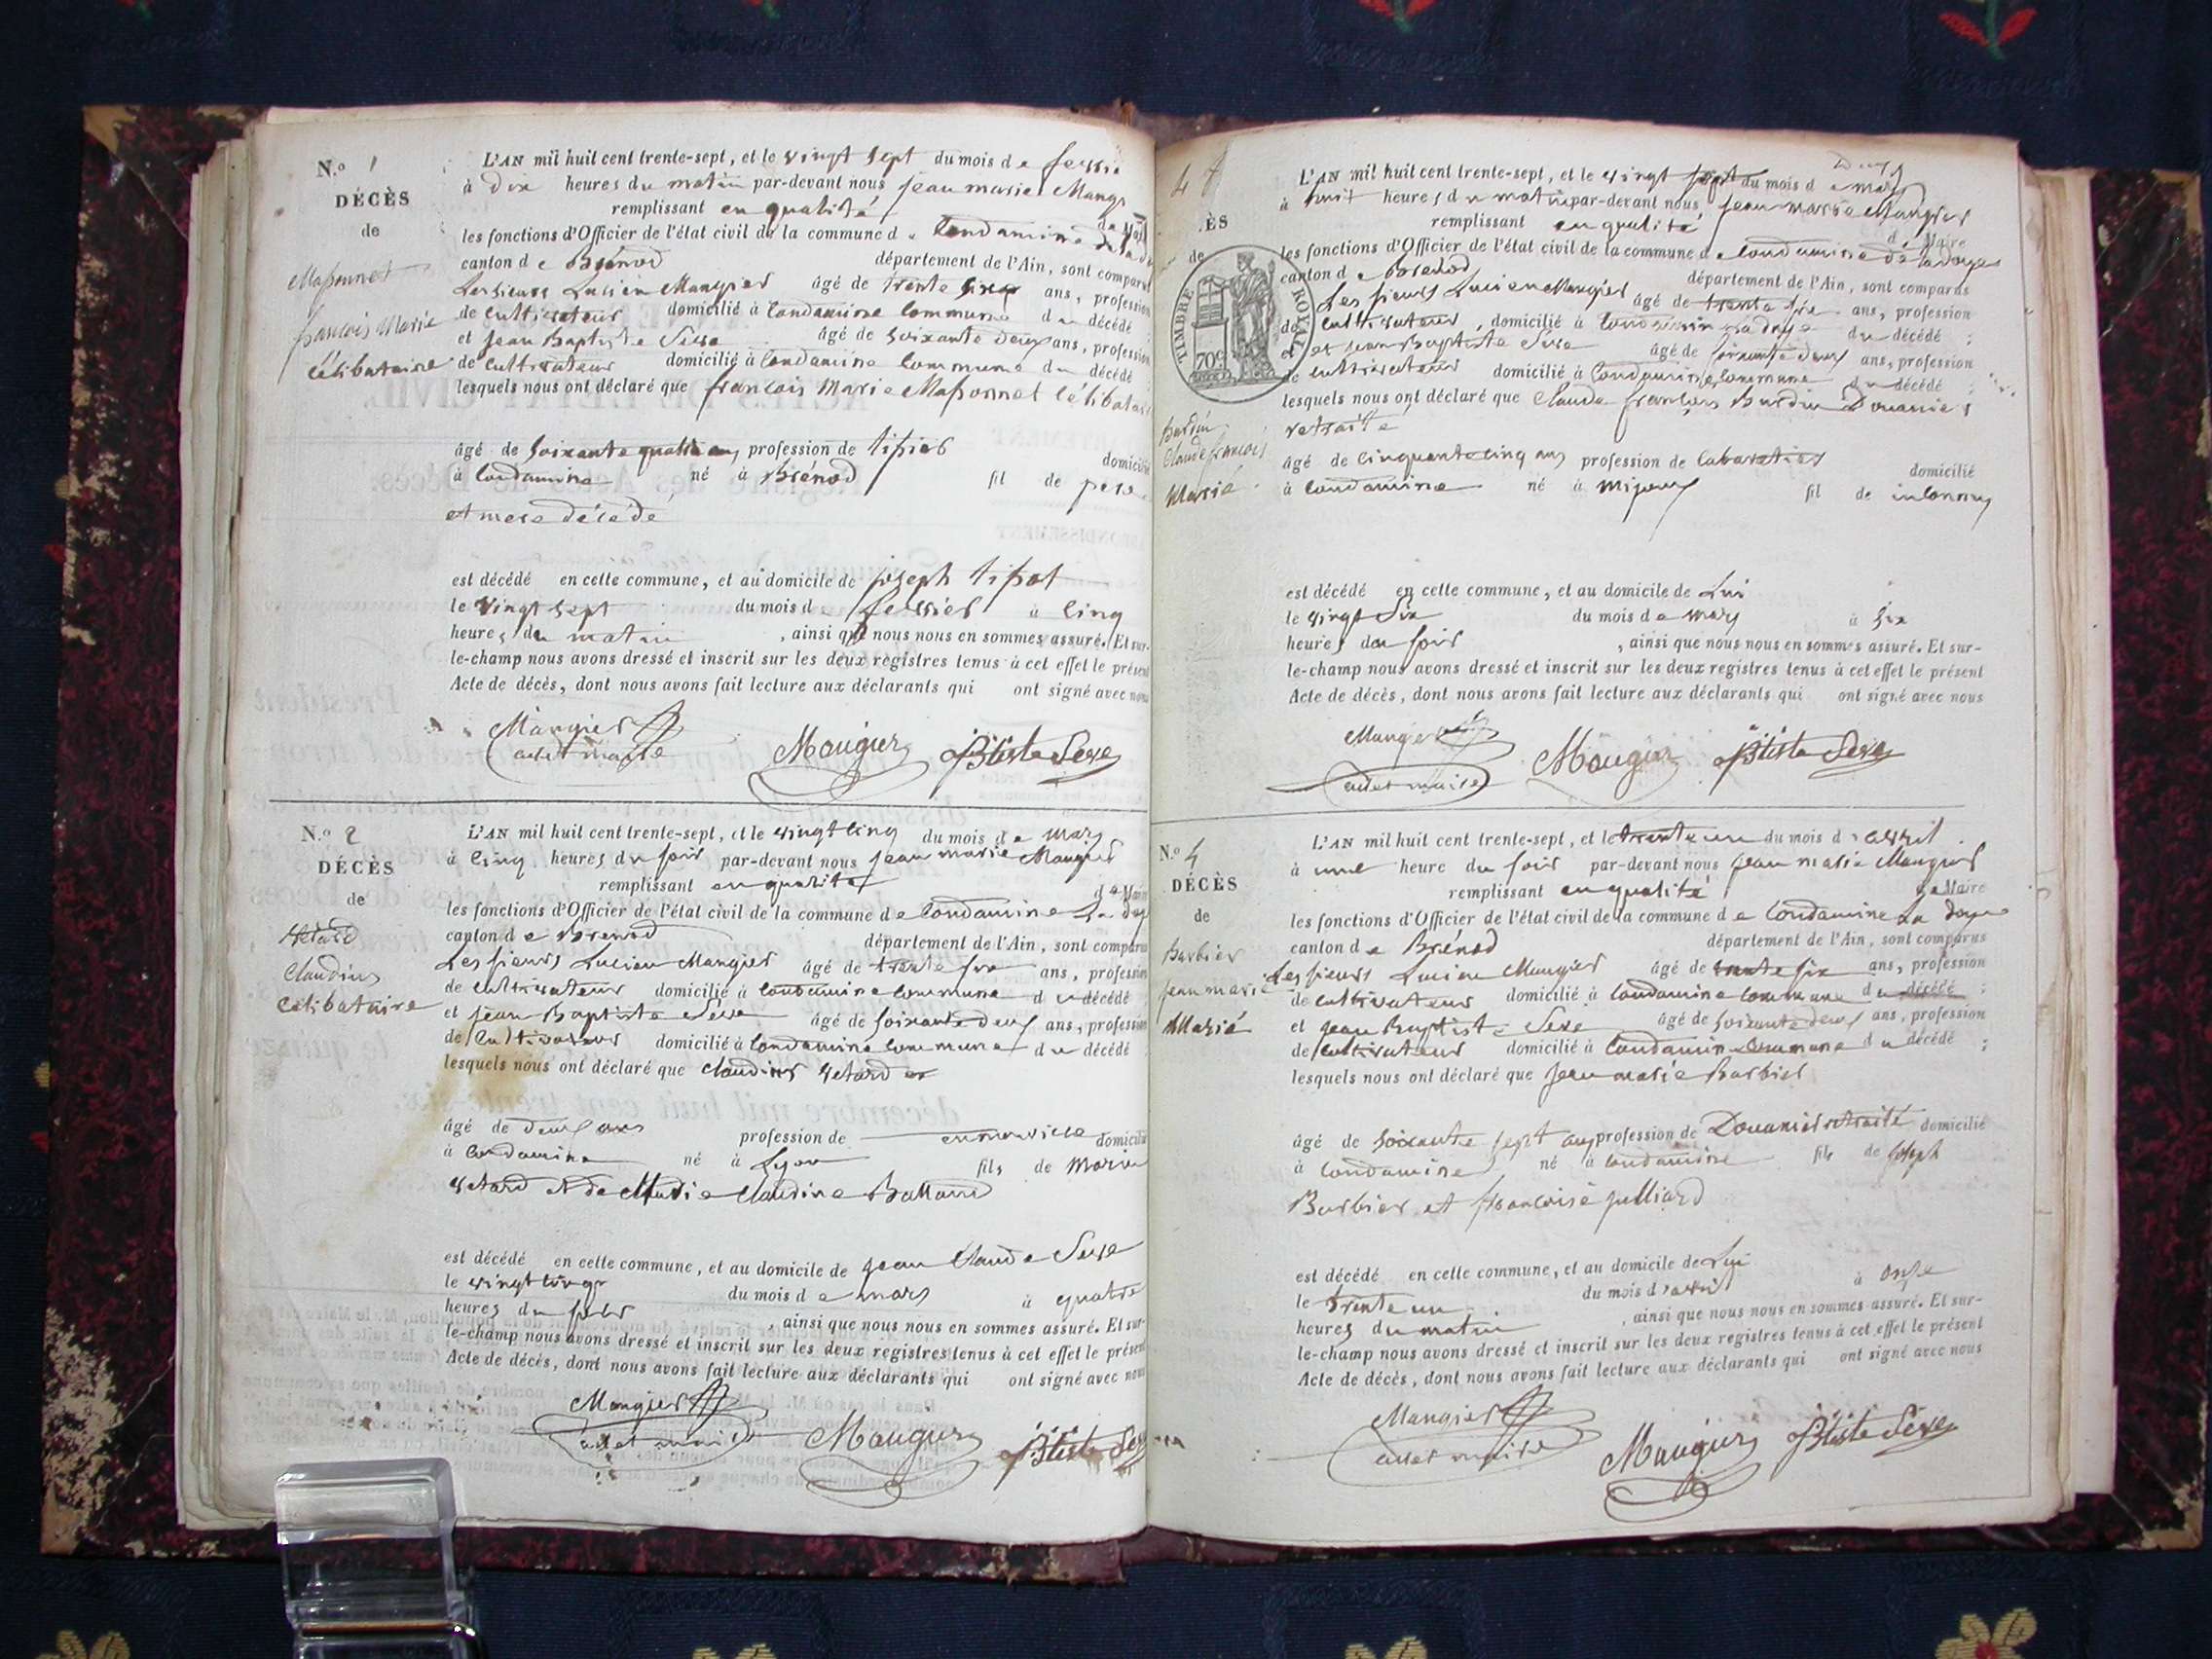 N.o 1
DÉCÈS
de
Massonnet
francois Marie
Célibataire
L'AN mil huit cent trente-sept, et le vingt sept du mois de fevrie
à dix heures du matin par-devant nous jean marie Maug
remplissant en qualité de Mai
les fonctions d'Officier de l'état civil de la commune de Condamine de la do
canton de Brénod département de l'Ain, sont comparus
Les sieurs Lucien Maugier âgé de trente six ans, profession
de Cultivateur domicilié à Condamine Commune du décédé ;
et jean Baptiste Seve âgé de soixante deux ans, profession
de Cultivateur domicilié à Condamine Commune du décédé
lesquels nous ont déclaré que francois Marie Massonnet Célibatai
âgé de soixante quatre ans profession de tisser domicilié
à Condamine né à Brénod fil de pere
et mere décédé
est décédé en cette commune, et au domicile de joseph tissot
le vingt sept du mois de fevrier à cinq
heures du matin , ainsi que nous nous en sommes assuré. Et sur-
le-champ nous avons dressé et inscrit sur les deux registres tenus à cet effet le présent
Acte de décès, dont nous avons fait lecture aux déclarants qui ont signé avec nous
Maugier Maugier JBtiste Seve
cadet maire
N.o 2
DÉCÈS
de
Claudius
Celibataire
L'AN mil huit cent trente-sept, et le vingt cinq du mois de mars
à cinq heures du soir par-devant nous jean marie Maugier
remplissant en qualité de Maire
les fonctions d'Officier de l'état civil de la commune de Condamine La doye
canton de Brenod département de l'Ain, sont comparus
Les sieurs Lucien Maugier âgé de trente six ans, profession
de Cultivateur domicilié à Condamine Commune du décédé
et jean Baptiste Seve âgé de soixante deux ans, profession
de Cultivateur domicilié à Condamine Commune du décédé
lesquels nous ont déclaré que Claudius
âgé de deux ans profession de en nourisse domicilié
à Condamine né à Lyon fils de Marie
et de Marie Claudine
est décédé en cette commune, et au domicile de jean Claude Seve
le vingt cinq du mois de mars à quatre
heures du soir , ainsi que nous nous en sommes assuré. Et sur-
le-champ nous avons dressé et inscrit sur les deux registres tenus à cet effet le présent
Acte de décès, dont nous avons fait lecture aux déclarants qui ont signé avec nous
Maugier Maugier JBtiste Seve
cadet maire
ÈS
de
TIMBRE ROYAL
70c
Burdin
Claude francois
Marié
L'AN mil huit cent trente-sept, et le vingt sept du mois de mars
à huit heures du matin par-devant nous jean marie Maugier
remplissant en qualité de Maire
les fonctions d'Officier de l'état civil de la commune de Condamine de la doye
canton de Brenod département de l'Ain, sont comparus
Les sieurs Lucien Maugier âgé de trente six ans, profession
de Cultivateur, domicilié à Condamin la doye du décédé ;
et jean Baptiste Seve âgé de soixante deux ans, profession
de Cultivateur domicilié à Condamine Commune du décédé
lesquels nous ont déclaré que Claude françois Burdin Douanier
retraite
âgé de cinquante cinq ans profession de domicilié
à Condamine né à Mijoux fil de inconnus
est décédé en cette commune, et au domicile de Lui
le vingt six du mois de mars à six
heures du soir , ainsi que nous nous en sommes assuré. Et sur-
le-champ nous avons dressé et inscrit sur les deux registres tenus à cet effet le présent
Acte de décès, dont nous avons fait lecture aux déclarants qui ont signé avec nous
Maugier Maugier JBtiste Seve
cadet maire
N.o 4
DÉCÈS
de
Barbier
jean marie
Marié
L'AN mil huit cent trente-sept, et le trente un du mois d'avril
à une heure du soir par-devant nous jean marie Maugier
remplissant en qualité de Maire
les fonctions d'Officier de l'état civil de la commune de Condamine La doye
canton de Brénod département de l'Ain, sont comparus
Les sieurs Lucien Maugier âgé de trente six ans, profession
de cultivateur domicilié à Condamine Commune du décédé ;
et jean Baptiste Seve âgé de soixante deux ans, profession
de Cultivateur domicilié à Condamin Commune du décédé ;
lesquels nous ont déclaré que jean marie Barbier
âgé de soixante sept ans profession de Douanier retraité domicilié
à Condamine né à Condamine fils de joseph
Barbier et francoise julliard
est décédé en cette commune, et au domicile de Lui
le trente un du mois d'avril à onze
heures du matin , ainsi que nous nous en sommes assuré. Et sur-
le-champ nous avons dressé et inscrit sur les deux registres tenus à cet effet le présent
Acte de décès, dont nous avons fait lecture aux déclarants qui ont signé avec nous
Maugier Maugier JBtiste Seve
cadet maire